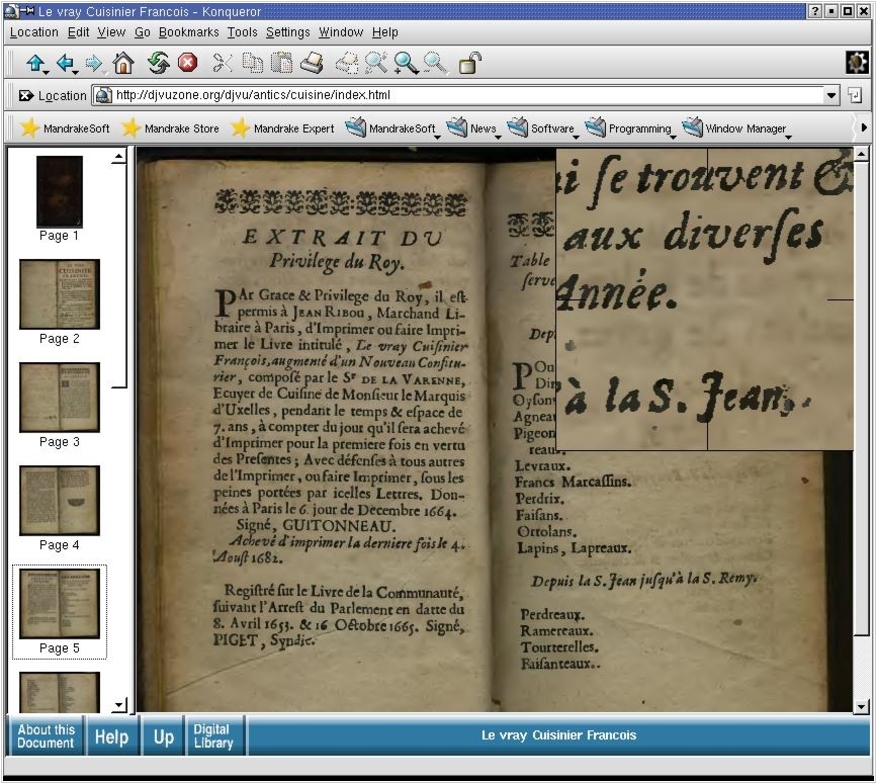 Le vray Cuisinier Francois - Konqueror
Location Edit View Go Bookmarks Tools Settings Window Help
Location http://djvuzone.org/djvu/antics/cuisine/index.html
MandrakeSoft Mandrake Store Mandrake Expert MandrakeSoft News Software Programming Window Manager
Page 1
Page 2
Page 3
Page 4
Page 5
EXTRAIT DU
Privilege du Roy.
PAr Grace & Privilege du Roy, il est
permis à JEAN RIBOU, Marchand Li-
braire à Paris, d'Imprimer ou faire Impri-
mer le Livre intitulé, Le vray Cuiſinier
François, augmenté d'un Nouveau Confitu-
rier, compoſé par le Sr DE LA VARENNE,
Ecuyer de Cuiſine de Monſieur le Marquis
d'Uxelles, pendant le temps & eſpace de
7. ans, à compter du jour qu'il ſera achevé
d'Imprimer pour la premiere fois en vertu
des Preſentes ; Avec défenſes à tous autres
de l'Imprimer, ou faire Imprimer, ſous les
peines portées par icelles Lettres. Don-
nées à Paris le 6. jour de Decembre 1664.
Signé, GUITONNEAU.
Achevé d'imprimer la derniere fois le 4.
Aouſt 1682.
Regiſtré ſur le Livre de la Communauté,
ſuivant l'Arreſt du Parlement en datte du
8. Avril 1653. & 16 Octobre 1665. Signé,
PIGET, Syndic.
Table
ſerve
Dep
POu
Din
Oyſon
Agnea
Pigeon
reau
Levraux.
Francs Marcaſſins.
Perdrix.
Faiſans.
Ortolans.
Lapins, Lapreaux.
Depuis la S. Jean juſqu'à la S. Remy.
Perdreaux.
Ramereaux.
Tourterelles.
Faiſanteaux.
i ſe trouvent &
aux diverſes
Année.
à la S. Jean.
About this Document Help Up Digital Library Le vray Cuisinier Francois